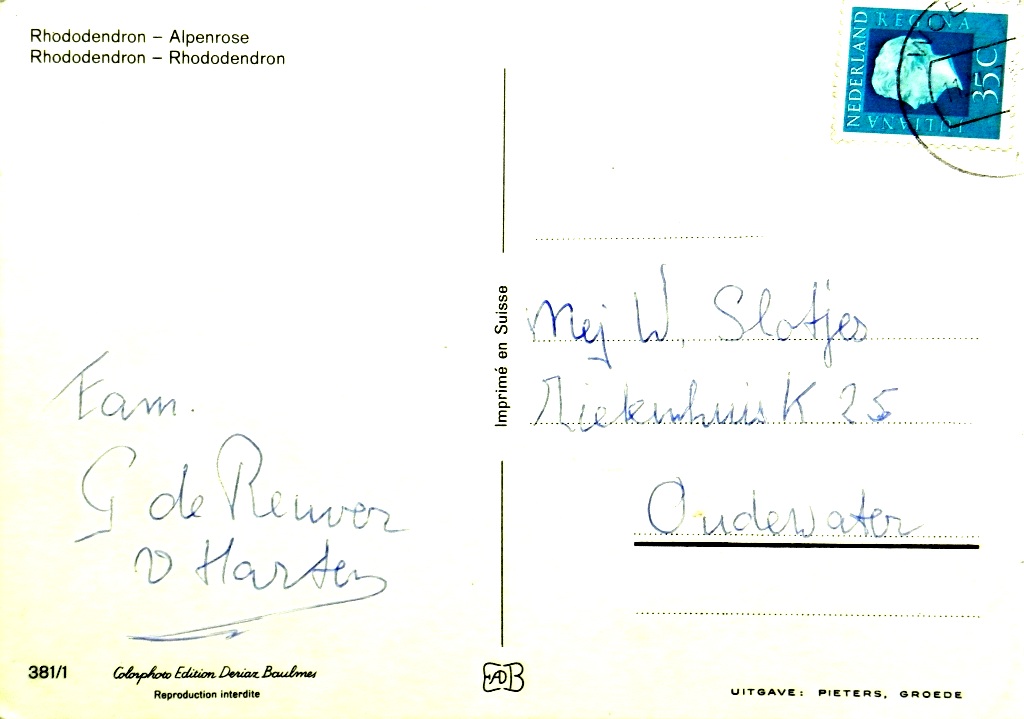 Rhododendron – Alpenrose
Rhododendron – Rhododendron
NEDERLAND
REGINA
JULIANA
35C
WOE
Imprimé en Suisse
Mej W. Slotjes
Ziekenhuis K 25
Oudewater
Fam.
G de Reuver
v Harten
381/1
Colorphoto Edition Deriaz Baulmes
Reproduction interdite
UITGAVE: PIETERS, GROEDE